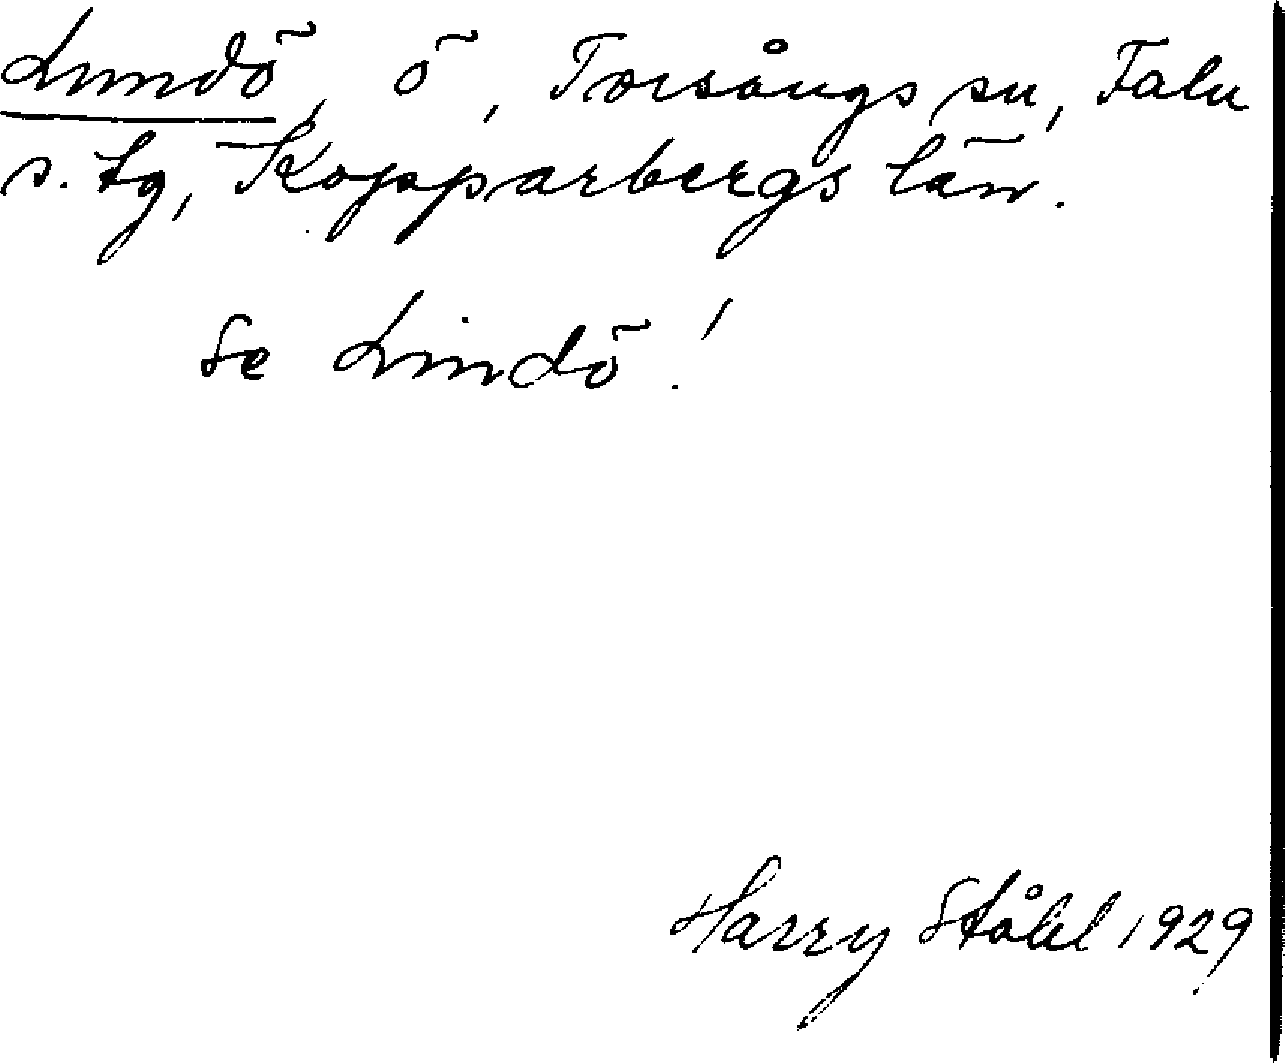 Lundö, ö, Torsångs sn, Falu
s. tg, Kopparbergs län.
Se Lindö!
Harry Ståhl 1929